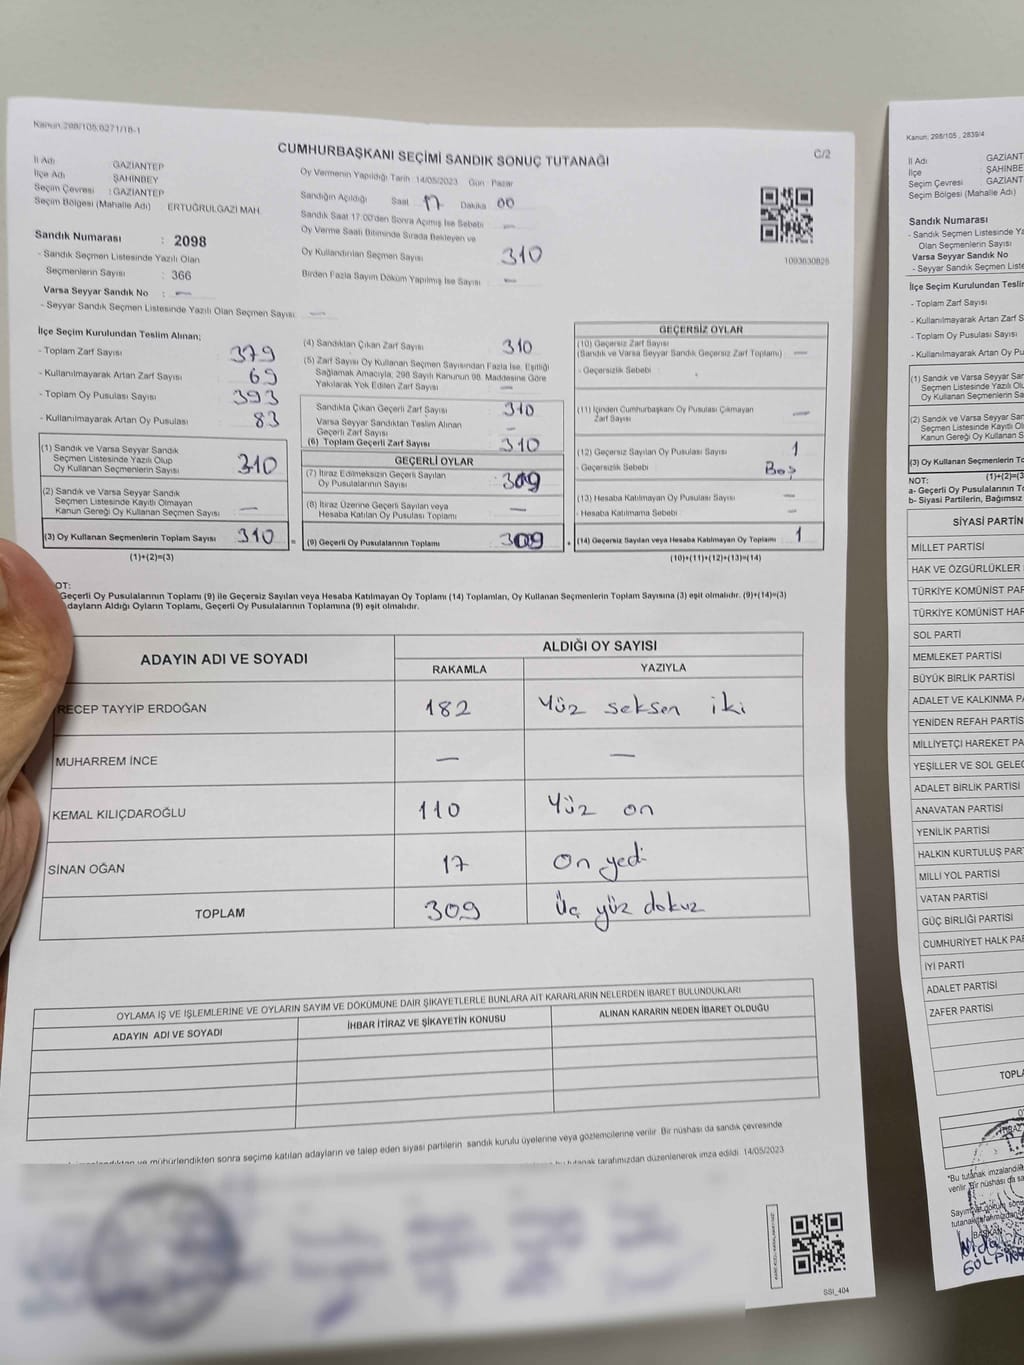 Kanun:298/105,6271/18-1
CUMHURBAŞKANI SEÇİMİ SANDIK SONUÇ TUTANAĞI
C/2
İl Adı : GAZİANTEP
İlçe Adı : ŞAHİNBEY
Seçim Çevresi : GAZİANTEP
Seçim Bölgesi (Mahalle Adı) : ERTUĞRULGAZİ MAH.
Sandık Numarası : 2098
- Sandık Seçmen Listesinde Yazılı Olan
Seçmenlerin Sayısı : 366
Varsa Seyyar Sandık No : —
- Seyyar Sandık Seçmen Listesinde Yazılı Olan Seçmen Sayısı : —
Oy Vermenin Yapıldığı Tarih :14/05/2023 Gün : Pazar
Sandığın Açıldığı Saat 17 Dakika 00
Sandık Saat 17:00'den Sonra Açımış İse Sebebi —
Oy Verme Saati Bitiminde Sırada Bekleyen ve
Oy Kullandırılan Seçmen Sayısı 310
Birden Fazla Sayım Döküm Yapılmış İse Sayısı —
İlçe Seçim Kurulundan Teslim Alınan;
- Toplam Zarf Sayısı 379
- Kullanılmayarak Artan Zarf Sayısı 69
- Toplam Oy Pusulası Sayısı 393
- Kullanılmayarak Artan Oy Pusulası 83
(1) Sandık ve Varsa Seyyar Sandık
Seçmen Listesinde Yazılı Olup
Oy Kullanan Seçmenlerin Sayısı 310
(2) Sandık ve Varsa Seyyar Sandık
Seçmen Listesinde Kayıtlı Olmayan
Kanun Gereği Oy Kullanan Seçmen Sayısı —
(3) Oy Kullanan Seçmenlerin Toplam Sayısı 310
(1)+(2)=(3)
(4) Sandıktan Çıkan Zarf Sayısı 310
(5) Zarf Sayısı Oy Kullanan Seçmen Sayısından Fazla İse, Eşitliği
Sağlamak Amacıyla, 298 Sayılı Kanunun 98. Maddesine Göre
Yakılarak Yok Edilen Zarf Sayısı —
Sandıkta Çıkan Geçerli Zarf Sayısı 310
Varsa Seyyar Sandıktan Teslim Alınan
Geçerli Zarf Sayısı —
(6) Toplam Geçerli Zarf Sayısı 310
GEÇERLİ OYLAR
(7) İtiraz Edilmeksizin Geçerli Sayılan
Oy Pusulalarının Sayısı 309
(8) İtiraz Üzerine Geçerli Sayılan veya
Hesaba Katılan Oy Pusulası Toplamı —
= (9) Geçerli Oy Pusulalarının Toplamı 309
GEÇERSİZ OYLAR
(10) Geçersiz Zarf Sayısı
(Sandık ve Varsa Seyyar Sandık Geçersiz Zarf Toplamı) —
- Geçersizlik Sebebi :
(11) İçinden Cumhurbaşkanı Oy Pusulası Çıkmayan
Zarf Sayısı —
(12) Geçersiz Sayılan Oy Pusulası Sayısı 1
- Geçersizlik Sebebi Boş
(13) Hesaba Katılmayan Oy Pusulası Sayısı —
- Hesaba Katılmama Sebebi —
+ (14) Geçersiz Sayılan veya Hesaba Katılmayan Oy Toplamı 1
(10)+(11)+(12)+(13)=(14)
OT:
Geçerli Oy Pusulalarının Toplamı (9) ile Geçersiz Sayılan veya Hesaba Katılmayan Oy Toplamı (14) Toplamları, Oy Kullanan Seçmenlerin Toplam Sayısına (3) eşit olmalıdır. (9)+(14)=(3)
dayların Aldığı Oyların Toplamı, Geçerli Oy Pusulalarının Toplamına (9) eşit olmalıdır.
ADAYIN ADI VE SOYADI
ALDIĞI OY SAYISI
RAKAMLA YAZIYLA
RECEP TAYYİP ERDOĞAN 182 Yüz seksen iki
MUHARREM İNCE — —
KEMAL KILIÇDAROĞLU 110 Yüz on
SİNAN OĞAN 17 On yedi
TOPLAM 309 Üç yüz dokuz
OYLAMA İŞ VE İŞLEMLERİNE VE OYLARIN SAYIM VE DÖKÜMÜNE DAİR ŞİKAYETLERLE BUNLARA AİT KARARLARIN NELERDEN İBARET BULUNDUKLARI
ADAYIN ADI VE SOYADI İHBAR İTİRAZ VE ŞİKAYETİN KONUSU ALINAN KARARIN NEDEN İBARET OLDUĞU
ve mühürlendikten sonra seçime katılan adayların ve talep eden siyasi partilerin sandık kurulu üyelerine veya gözlemcilerine verilir. Bir nüshası da sandık çevresinde
tutanak tarafımızdan düzenlenerek imza edildi. 14/05/2023
SSI_404
Kanun: 298/105 , 2839/4
İl Adı : GAZİANT
İlçe : ŞAHİNBE
Seçim Çevresi : GAZİANT
Seçim Bölgesi (Mahalle Adı)
Sandık Numarası
- Sandık Seçmen Listesinde Ya
Olan Seçmenlerin Sayısı
Varsa Seyyar Sandık No
- Seyyar Sandık Seçmen Liste
İlçe Seçim Kurulundan Teslim
- Toplam Zarf Sayısı
- Kullanılmayarak Artan Zarf S
- Toplam Oy Pusulası Sayısı
- Kullanılmayarak Artan Oy Pu
(1) Sandık ve Varsa Seyyar San
Seçmen Listesinde Yazılı Olu
Oy Kullanan Seçmenlerin Sa
(2) Sandık ve Varsa Seyyar San
Seçmen Listesinde Kayıtlı Ol
Kanun Gereği Oy Kullanan S
(3) Oy Kullanan Seçmenlerin To
(1)+(2)=(3
NOT:
a- Geçerli Oy Pusulalarının To
b- Siyasi Partilerin, Bağımsız
SİYASİ PARTİN
MİLLET PARTİSİ
HAK VE ÖZGÜRLÜKLER
TÜRKİYE KOMÜNİST PAR
TÜRKİYE KOMÜNİST HAR
SOL PARTİ
MEMLEKET PARTİSİ
BÜYÜK BİRLİK PARTİSİ
ADALET VE KALKINMA PA
YENİDEN REFAH PARTİS
MİLLİYETÇİ HAREKET PA
YEŞİLLER VE SOL GELEC
ADALET BİRLİK PARTİSİ
ANAVATAN PARTİSİ
YENİLİK PARTİSİ
HALKIN KURTULUŞ PAR
MİLLİ YOL PARTİSİ
VATAN PARTİSİ
GÜÇ BİRLİĞİ PARTİSİ
CUMHURİYET HALK PAR
İYİ PARTİ
ADALET PARTİSİ
ZAFER PARTİSİ
TOPLA
*Bu tutanak imzalandık
verilir. Bir nüshası da sa